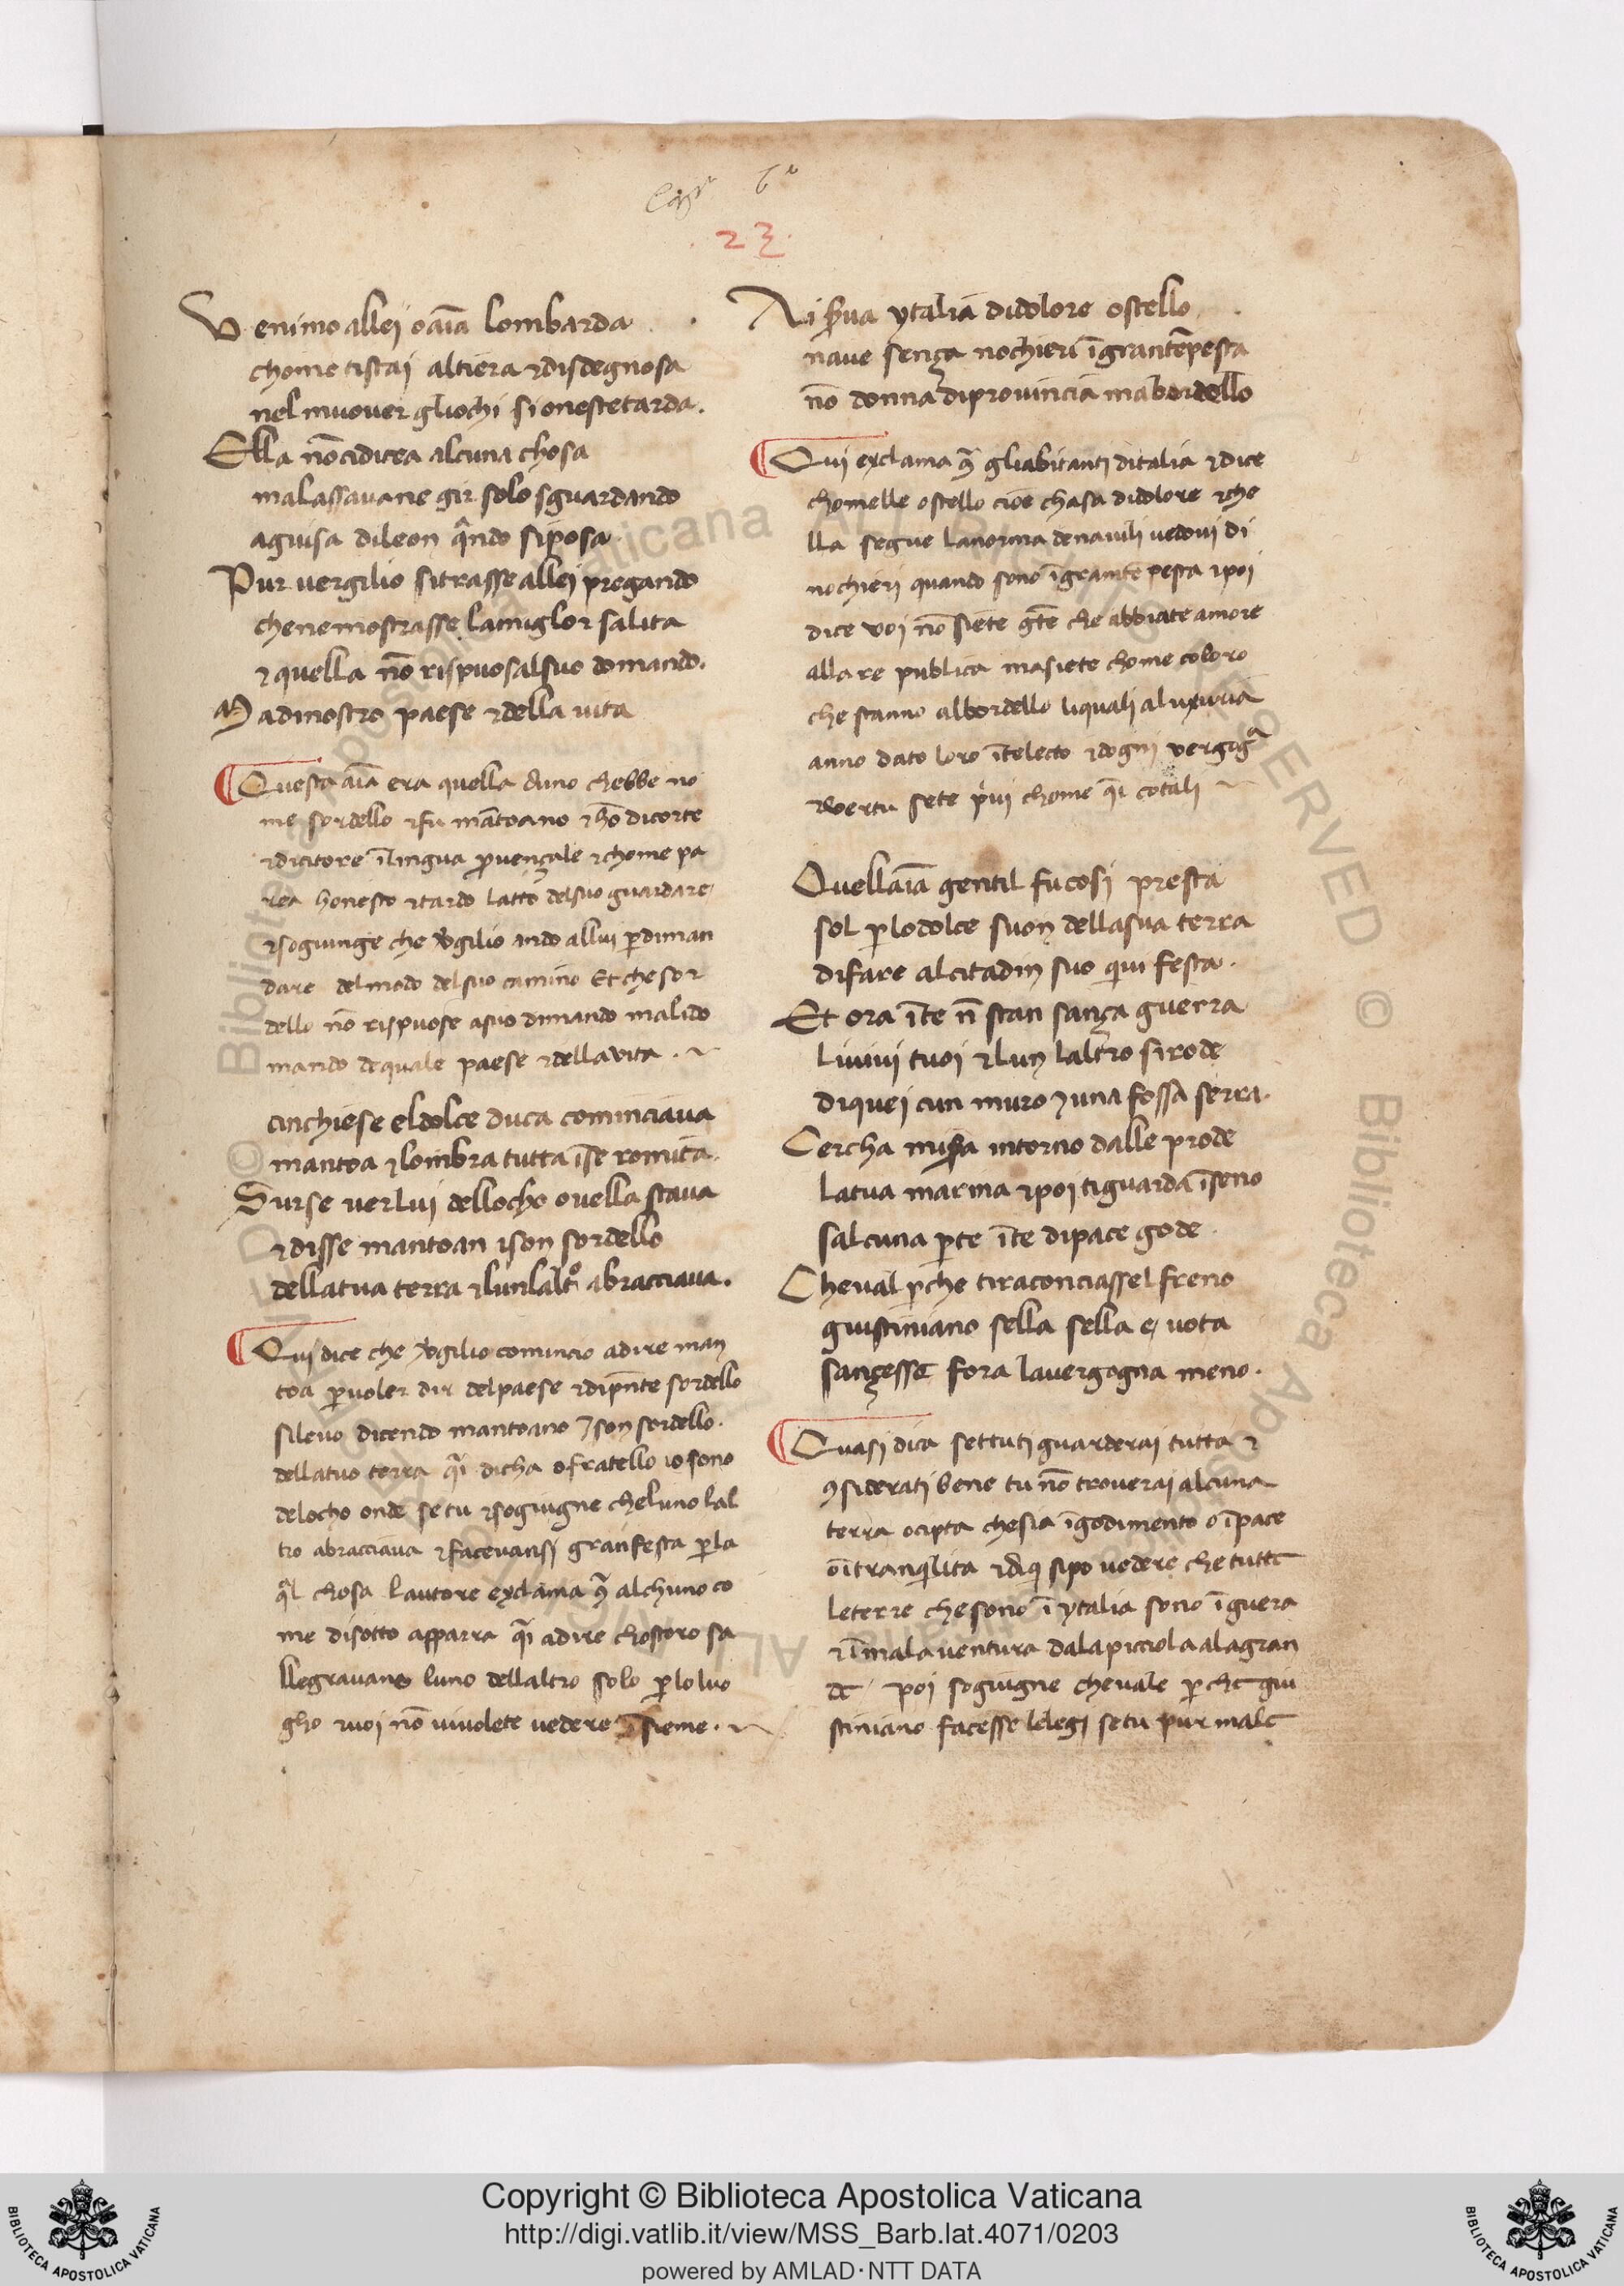 Capº 6º
.23.
Venimo allei o aīa lombarda
chome tistai altiera ⁊disdegnosa
nel muouer gliochi si onestetarda.
Ella nōcidicea alcuna chosa
malassauane gir solo sguardando
aguisa dileon qando siposa
Pur uergilio sitrasse allei pregando
chenemostrasse lamiglor salita
⁊quella nō rispuosalsuo domando.
Madinostro paese ⁊della uita
Questa aīa era quella duno chebbe no
me sordello ⁊fu mātoano ⁊hō dicorte
⁊dicitore ī lingua prouençale ⁊chome pa
rea honesto ⁊tardo latto delsuo guardare
⁊sogiunge che Vgilio ando allui pdiman
dare delmodo delsuo camino Et che sor
dello nō rispuose asuo dimando malido
mando dequale paese ⁊dellauita .
cinchiese eldolce duca cominciaua
mantoa ⁊lombra tutta īse romita.
Surse uerlui dellocho ouella staua
⁊disse mantoan ison sordello
dellatua terra ⁊lunlaltº abracciaua.
Qui dice che Vgilio comincio adire man
toa puoler dir delpaese ⁊dipnte sordello
sileuo dicendo mantoano ⁊son sordello.
dellatuo terra qi dicha o fratello io sono
delocho onde se tu ⁊sogiugne cheluno lal
tro abracciaua ⁊faceuansi granfesta pla
ql chosa lautore exclama 9 alchuno co
me disotto apparra qi adire chostoro sa
llegrauano luno dellaltro solo plo luo
gho ⁊uoi nō uiuolete uedere īsieme .
Ai serua ytalia didolore ostello
naue sença nochieri īgrantēpesta
nō donna diprouincia ma bordello
Qui exclama 9 gliabitanti ditalia ⁊dice
chomelle ostello cioe chasa didolore ⁊che
lla segue lanorma denauili uedoui di
nochieri quando sono īgrantēpesta ⁊poi
dice uoi nō siete gte che abbiate amore
alla re publica masiete chome coloro
che stanno albordello liquali aluxuria
anno dato loro ītelecto ⁊dogni uergoga
⁊uertu sete priui chome qi cotali
Quellaīa gentil fu cosi presta
sol plodolce suon dellasua terra
difare alcitadin suo qui festa.
Et ora īte n stan sança guerra
Liuiui tuoi ⁊lun laltro si rode
diquei cun muro ⁊una fossa serra.
Cercha misera intorno dalle prode
latua marina ⁊poi tiguarda īseno
salcuna pte īte dipace gode.
Cheual pche tiraconciassel freno
giustiniano sella sella e uota
sançesse fora lauergogna meno.
Quasi dica settuti guarderai tutta ⁊
9siderati bene tu nō trouerai alcuna
terra ocipta chesia īgodimento o īpace
oītranqilita ⁊diqi sipo uedere che tutte
leterre chesono ī ytalia sono īguera
⁊īmala uentura dalapicciola alagran
de poi sogiugne cheuale pche giu
stiniano facesse lelegi setu pur male
Copyright © Biblioteca Apostolica Vaticana
http://digi.vatlib.it/view/MSS_Barb.lat.4071/0203
powered by AMLAD·NTT DATA